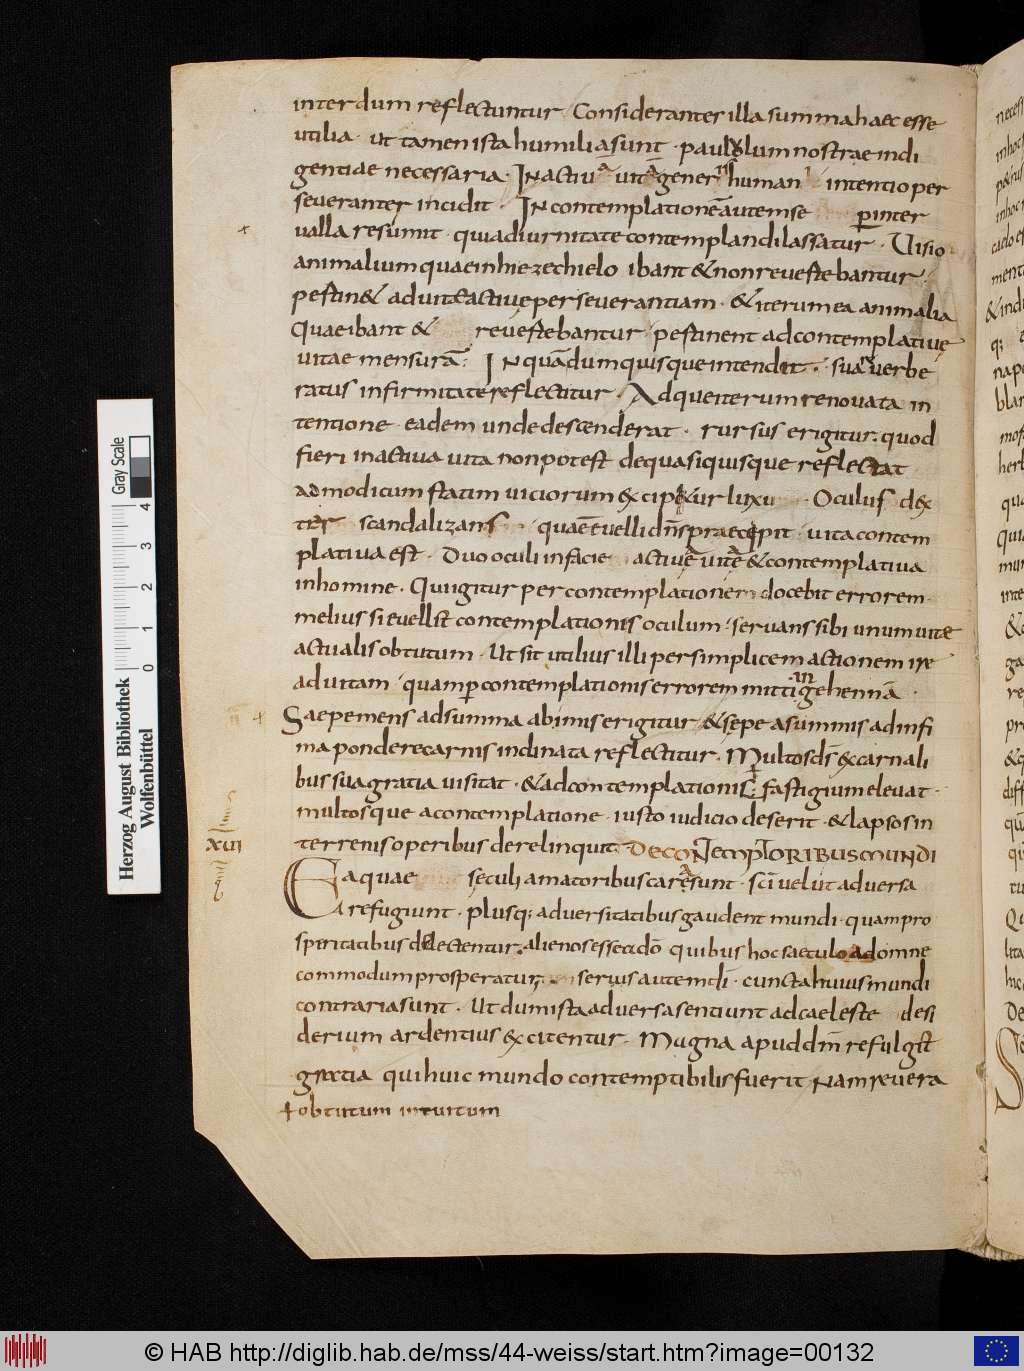 interdum reflectuntur · Consideranter illa summa haec esse
utilia · ut tamen ista humilia sunt · paululum nostrae indi
gentiae necessaria · In activa vita generis human intentio per
severanter incidit · In contemplatione autem se per inter
valla resumit · quia diurnitate contemplandi lassatur · Visio
animalium quae in hiezechielo ibant & non revertebantur ·
pertin& ad vitae activae perseverantiam · & iterum ea animalia
quae ibant & revertebantur pertinent ad contemplativae
vitae mensurā · In quā dum quisque intendit · sua verbe
ratus infirmitate reflectitur · Adque iterum renovata in
tentione eadem unde descenderat · rursus erigitur · quod
fieri in activa vita non potest de qua si quisque reflectat
ad modicum statim viciorum excipitur luxu · Oculus dex
ter scandalizans quae evelli dn̄s praecepit vita contem
plativa est · Duo oculi in facie activę vitę & contemplativa
in homine · Qui igitur per contemplationem docebit errorem
melius si evellit contemplationis oculum · servans sibi unum vitę
actualis obtutum · Ut sit utilius illi per simplicem actionem ire
ad vitam quam per contemplationis errorem mitti in gehennā ·
Saepe mens ad summa ab imis erigitur & sepe a summis ad infi
ma pondere carnis inclinata reflectitur · Multos ds̄ ex carnali
bus sua gratia visitat · & ad contemplationis fastigium elevat ·
multosque a contemplatione iusto iudicio deserit · & lapsos in
terrenis operibus derelinquit DE CONTEMPTORIBUS MUNDI
XVII
Ea quae seculi amatoribus cara sunt · sci velut adversa
refugiunt · plusq; adversitatibus gaudent mundi · quam pro
speritatibus delectentur · alienos esse a dō quibus hoc saeculo ad omne
commodum prosperatur · servis autem dī · cuncta huius mundi
contraria sunt · Ut dum ista adversa sentiunt ad caeleste desi
derium ardentius excitentur · Magna apud dm̄ refulgit
gratia qui huic mundo contemptibilis fuerit Nam revera
+ obtutum intuitum
Gray Scale
0 1 2 3 4
Herzog August Bibliothek
Wolfenbüttel
© HAB http://diglib.hab.de/mss/44-weiss/start.htm?image=00132